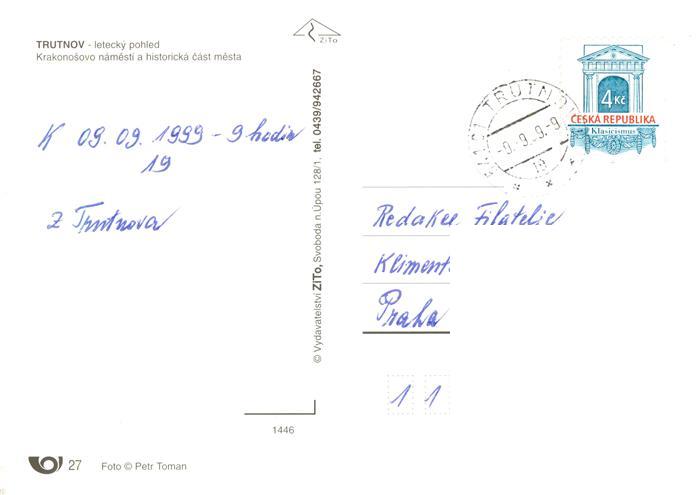 TRUTNOV - letecký pohled
Krakonošovo náměstí a historická část města
ZiTo
K 09.09.1999 - 9 hodin
19
Z Trutnova
© Vydavatelství ZiTo, Svoboda n.Úpou 128/1, tel. 0439/942667
TRUTNOV
-9.9.9-9
19
4 Kč
ČESKÁ REPUBLIKA
Klasicismus
Redakce Filatelie
Kliment
Praha
1 1
1446
27 Foto © Petr Toman